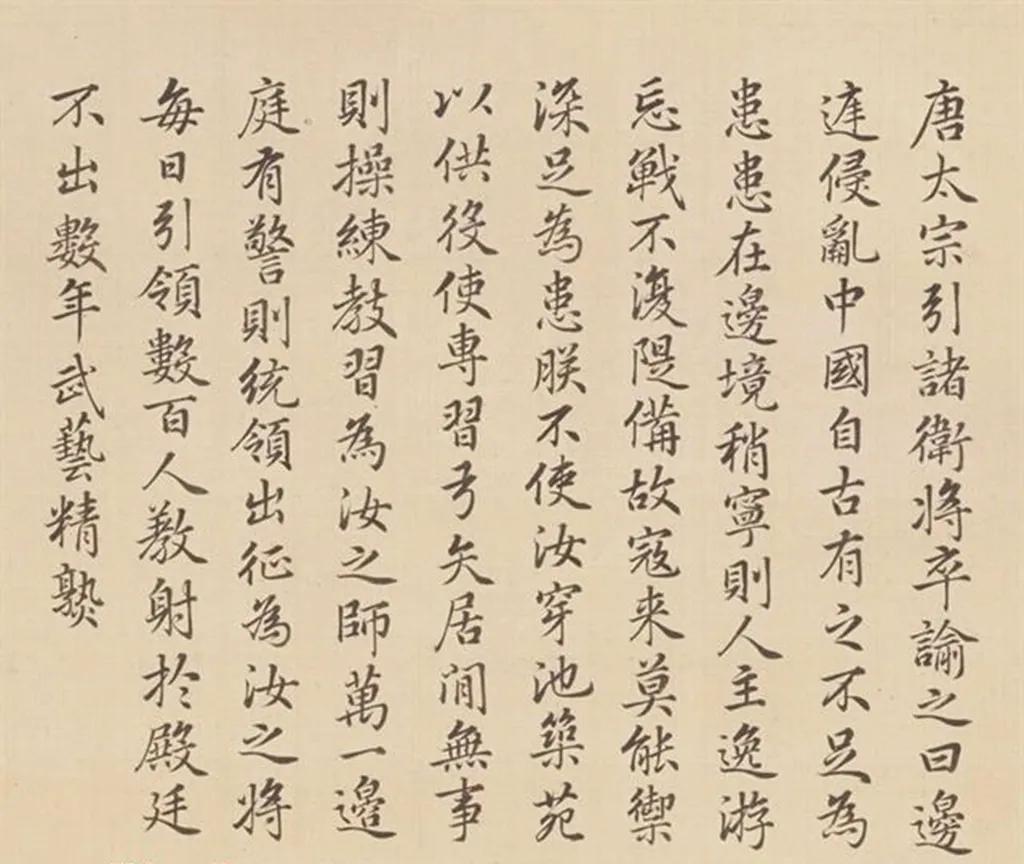 唐太宗引諸衛将卒諭之曰邊
遳侵亂中國自古有之不足為
患患在邊境稍寧則人主逸游
忘戰不復隄備故寇来莫能禦
深足為患朕不使汝穿池築苑
以供役使専習弓矢居閒無事
則操練教習為汝之師萬一邊
庭有警則統領出征為汝之将
每日引領數百人教射於殿廷
不出數年武藝精熟